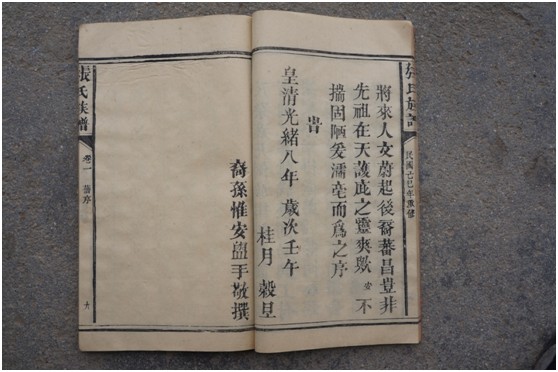 張氏族譜
民國己巳年重修
將來人文蔚起後裔蕃昌豈非
先祖在天護庇之靈爽歟 安 不
揣固陋爰濡毫而爲之序
旹
皇清光緒八年 歲次壬午
桂月 穀旦
裔孫惟安盥手敬撰
張氏族譜
卷一 舊序
六